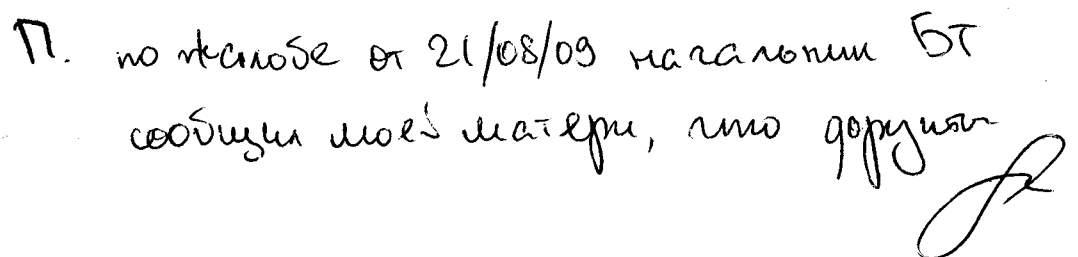 П. по жалобе от 21/08/09 начальник БТ
сообщил моей матери, что